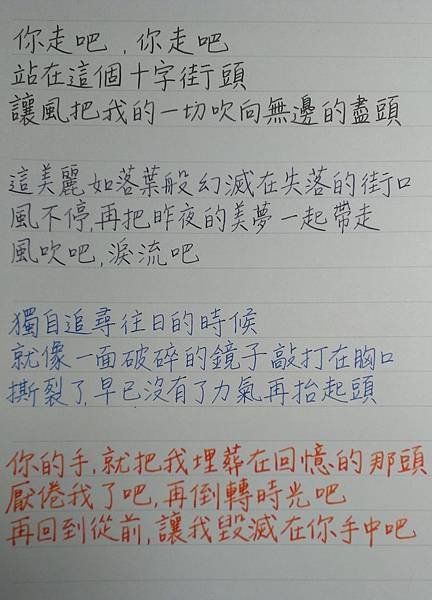 你走吧,你走吧
站在這個十字街頭
讓風把我的一切吹向無邊的盡頭
這美麗如落葉般幻滅在失落的街口
風不停,再把昨夜的美夢一起帶走
風吹吧,淚流吧
獨自追尋往日的時候
就像一面破碎的鏡子敲打在胸口
撕裂了,早已沒有了力氣再抬起頭
你的手,就把我埋葬在回憶的那頭
厭倦我了吧,再倒轉時光吧
再回到從前,讓我毀滅在你手中吧